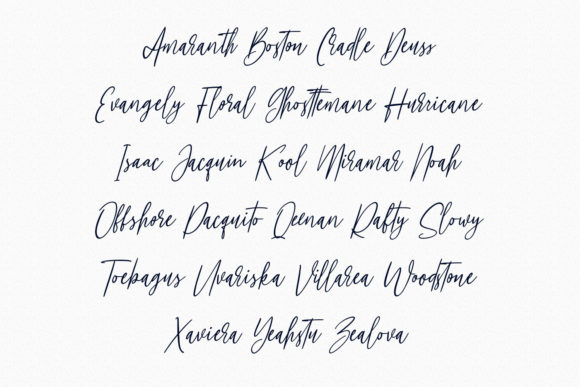 Amaranth Boston Cradle Deuss
Evangely Floral Ghosttemane Hurricane
Isaac Jacquin Kool Miramar Noah
Offshore Pacquito Qeenan Rafty Slowy
Toebagus Uvariska Villarea Woodstone
Xaviera Yeahstu Zealova